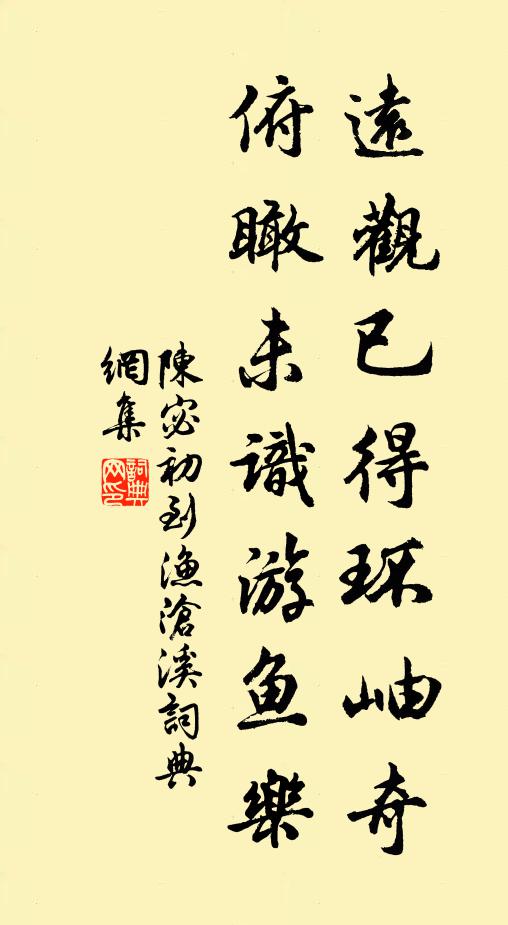 遠觀已得环岫奇
俯瞰未識游鱼樂
陳宓初到漁滄溪詞典
網集
詞典
网印